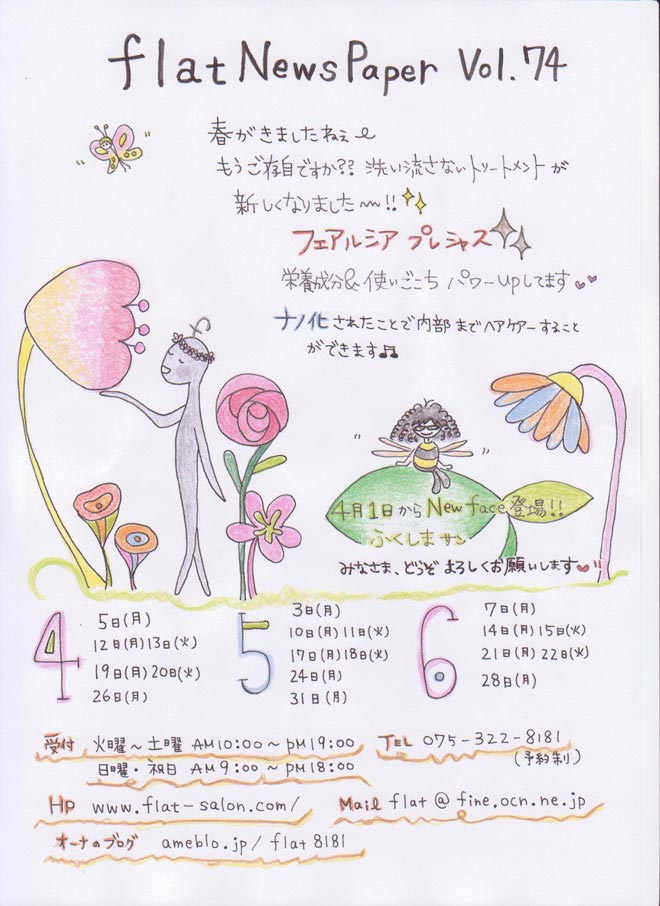 flat News Paper Vol. 74
春がきましたねぇ
もうご存自ですか?? 洗い流さないトリートメントが
新しくなりました〜!!
フェアルシア プレシャス
栄養成分&使いごこち パワーupしてます
ナノ化されたことで内部までヘアケアーすること
ができます♫
4月1日から New face 登場!!
ふくしまサン
みなさま、どうぞ よろしくお願いします
4
5日(月)
12日(月)13日(火)
19日(月)20日(火)
26日(月)
5
3日(月)
10日(月)11日(火)
17日(月)18日(火)
24日(月)
31日(月)
6
7日(月)
14日(月)15日(火)
21日(月)22日(火)
28日(月)
受付 火曜〜土曜 AM10:00〜PM19:00
日曜・祝日 AM9:00〜PM18:00
TEL 075-322-8181
(予約制)
HP www.flat-salon.com/
Mail flat@fine.ocn.ne.jp
オーナのブログ ameblo.jp/flat8181